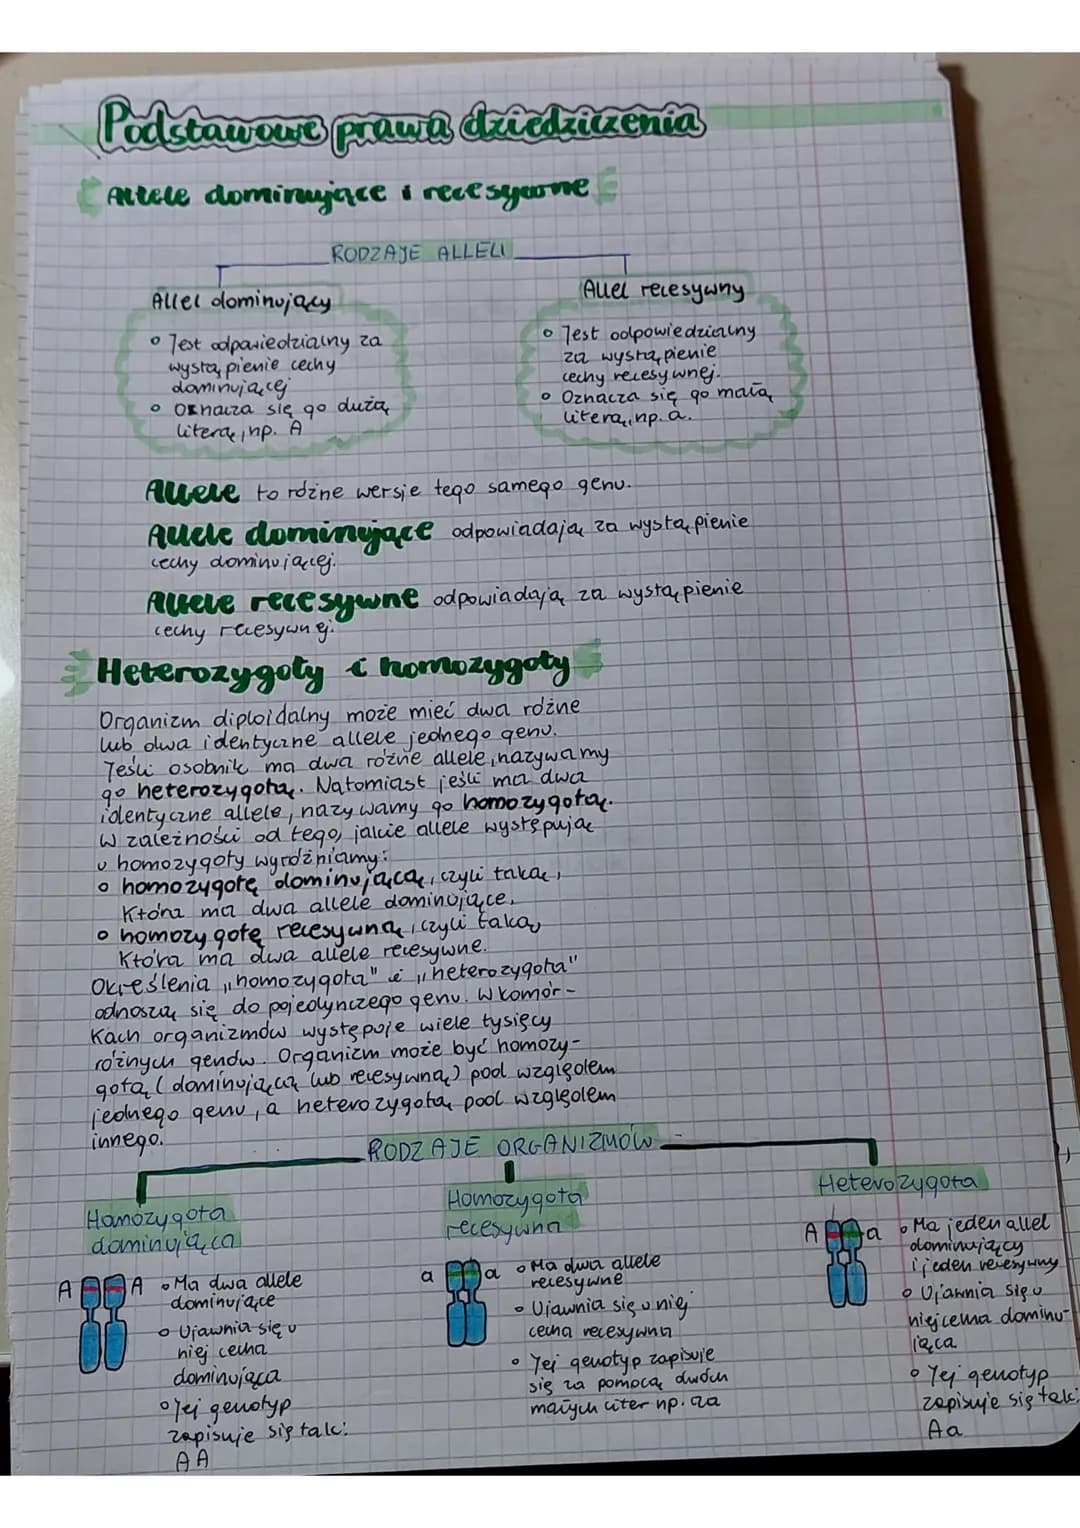 Podstawowe prawa dziedziczenia
Allele dominujące i recesywne
RODZAJE ALLELI
Allel dominujący
• Jest odpowiedzialny za
wystąpienie cechy
dominującej
• Oznacza się go dużą
literą, np. A
Allel recesywny
• Jest odpowiedzialny
za wystąpienie
cechy recesywnej.
• Oznacza się go małą
literą, np. a.
Allele to różne wersje tego samego genu.
Allele dominujące odpowiadają za wystąpienie
cechy dominującej.
Allele recesywne odpowiadają za wystąpienie
cechy recesywnej.
Heterozygoty i homozygoty
Organizm diploidalny może mieć dwa różne
lub dwa identyczne allele jednego genu.
Jeśli osobnik ma dwa różne allele, nazywamy
go heterozygotą. Natomiast jeśli ma dwa
identyczne allele, nazywamy go homozygotą.
W zależności od tego, jakie allele występują
u homozygoty wyróżniamy:
• homozygotę dominującą, czyli taką,
Która ma dwa allele dominujące,
• homozygotę recesywną, czyli taką,
Która ma dwa allele recesywne.
Określenia „homozygota" i „heterozygota"
odnoszą się do pojedynczego genu. W komór-
Kach organizmów występuje wiele tysięcy
różnych genów. Organizm może być homozy-
gotą (dominującą lub recesywną) pod względem
jednego genu, a heterozygotą pod względem
innego.
RODZAJE ORGANIZMÓW
Homozygota
dominująca
A A
• Ma dwa allele
dominujące
• Ujawnia się u
niej cecha
dominująca
• Jej genotyp
zapisuje się tak:
AA
Homozygota
recesywna
a a
• Ma dwa allele
recesywne
• Ujawnia się u niej
cecha recesywna
• Jej genotyp zapisuje
się za pomocą dwóch
małych liter np. aa
Heterozygota
A a
• Ma jeden allel
dominujący
i jeden recesywny
• Ujawnia się u
niej cecha dominu-
jąca
• Jej genotyp
zapisuje się tak:
Aa